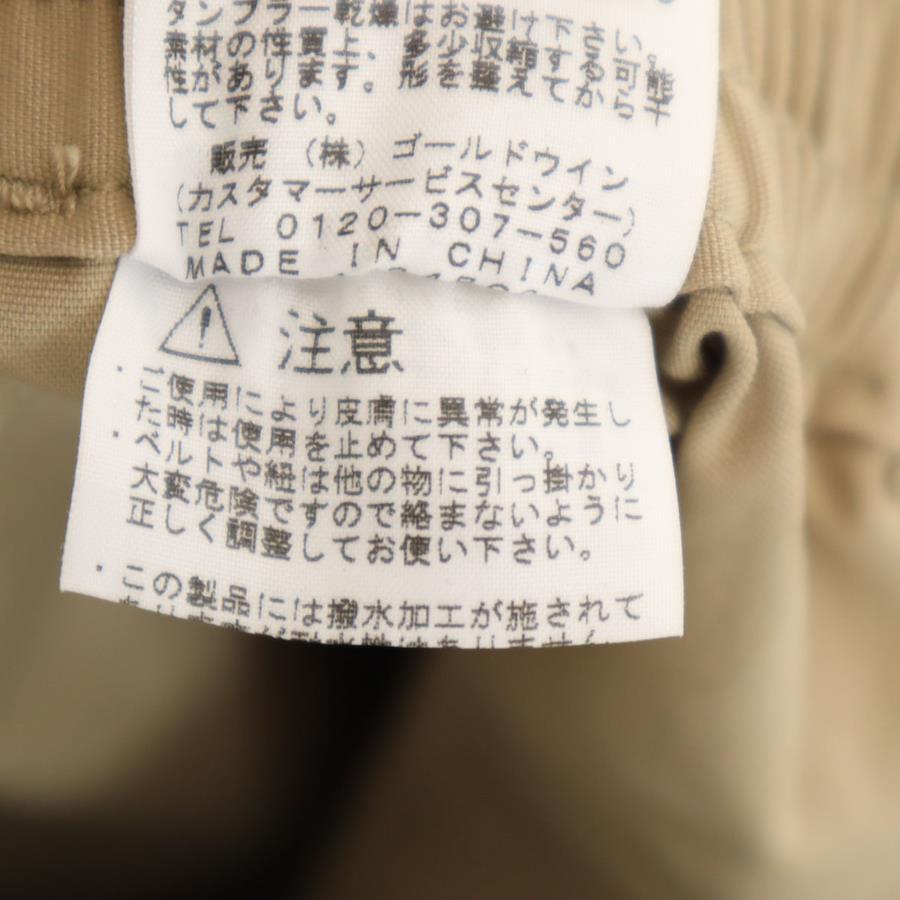 タンブラー乾燥はお避け下さい。
素材の性質上、多少収縮する可
性があります。形を整えてから干
して下さい。
販売 (株) ゴールドウイン
(カスタマーサービスセンター)
TEL 0120-307-560
MADE IN CHINA
注意
・ご使用により皮膚に異常が発生し
た時は使用を止めて下さい。
・ベルトや紐は他の物に引っ掛かり
大変危険ですので絡まないように
正しく調整してお使い下さい。
・この製品には撥水加工が施されて